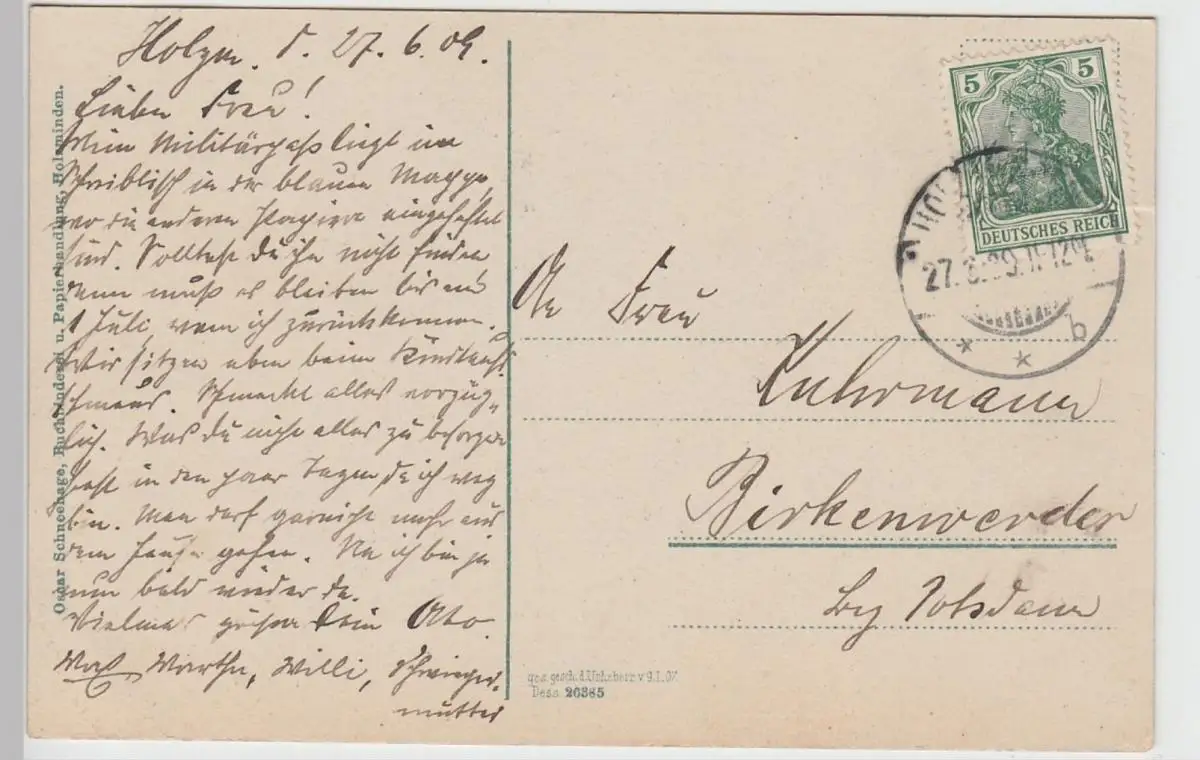 Holzm. d. 27.6.09.
Liebe Frau!
Mein Militärpaß liegt im
Schreibtisch in der blauen Mappe,
wo die anderen Papiere eingeheftet
sind. Solltest du ihn nicht finden
dann muß es bleiben bis zum
1 Juli, wenn ich zurückkomme.
Wir sitzen eben beim Kindtaufs-
schmaus. Schmeckt alles vorzüg-
lich. Was du nicht alles zu besorgen
hast in den paar Tagen, da ich weg
bin. Man darf garnicht mehr aus
dem Hause gehen. Na ich bin ja
nun bald wieder da.
Vielmals grüßen Dein Otto.
Max Martha, Willi, Schwieger-
mutter
Oscar Schneehage, Buchbinderei u. Papierhandlung, Holzminden.
5 5
DEUTSCHES REICH
27.6.09. 11-12
b
An Frau
Kuhrmann
Birkenwerder
bey Potsdam
ges. gesch. d. Urheberr. v. 9.1.07.
Dess. 26385